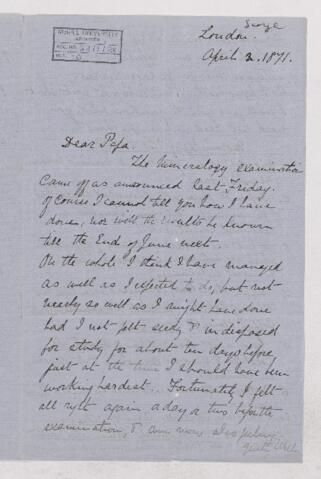 George
London.
April 2. 1871.
McGILL UNIVERSITY
ARCHIVES
ACC. NO.
REF.
Dear Papa.
The Mineralogy examination
Came off as announced last Friday.
Of course I cannot tell you how I have
done, nor will the results be known
till the End of June next.
On the whole I think I have managed
as well as I expected to do, but not
nearly so well as I might have done
had I not felt seedy & indisposed
for study for about ten days before,
just at the time I should have been
working hardest. Fortunately I felt
all right again a day or two before the
examination, & am now also feeling
quite well.